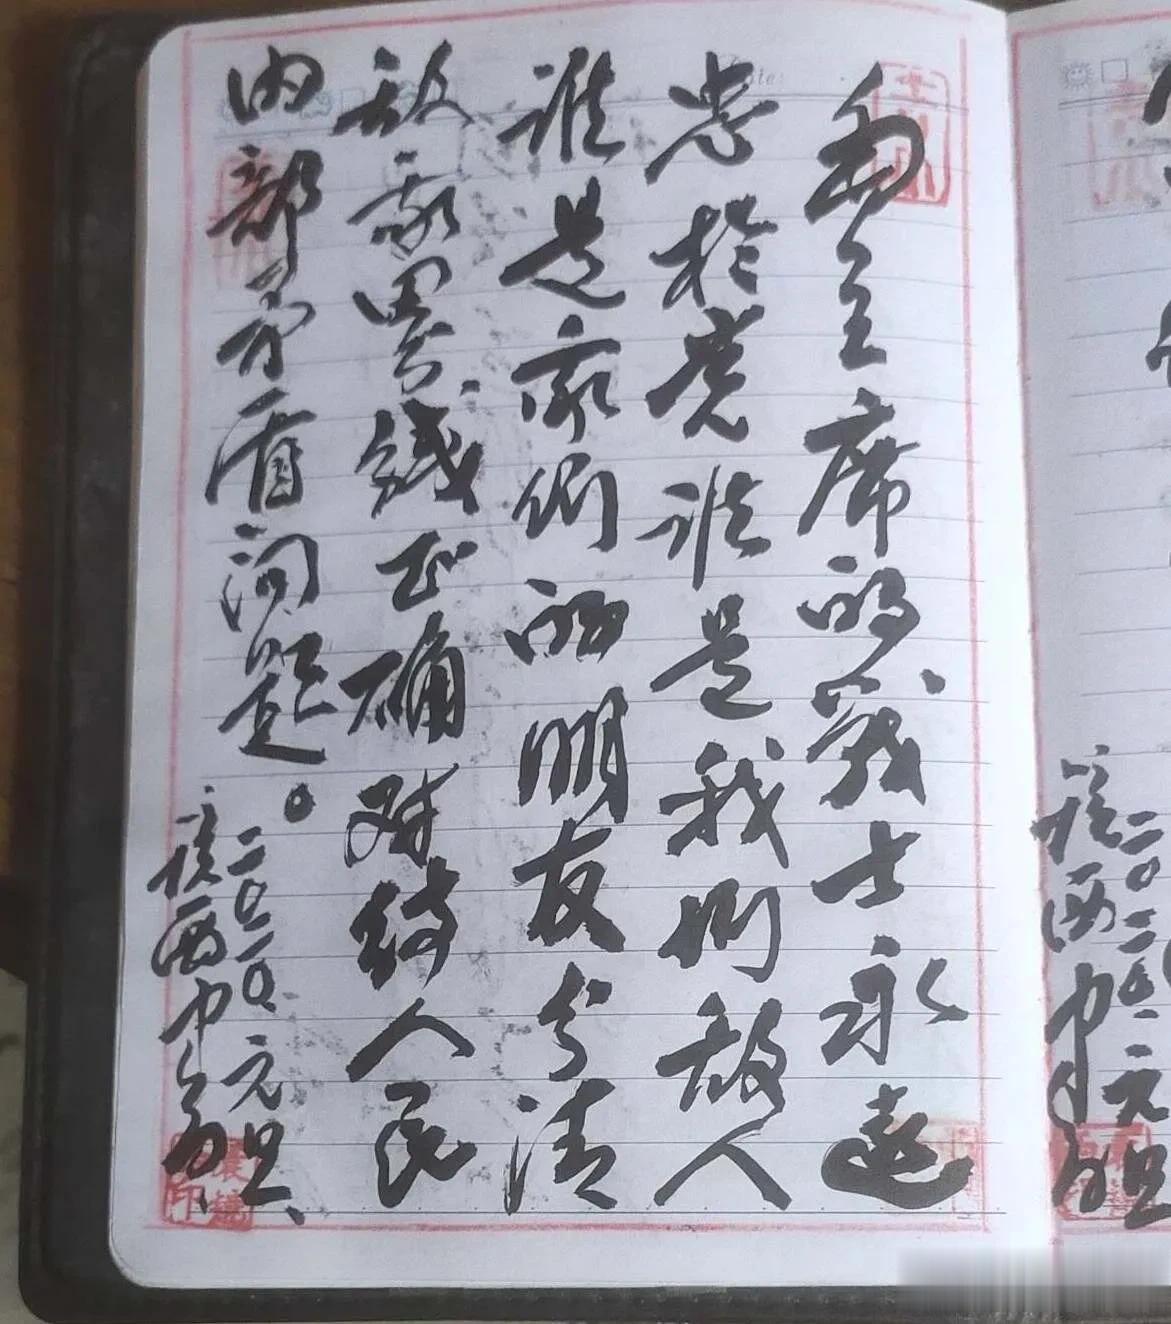 毛主席的战士永远
忠於党谁是我们敌人
谁是我们的朋友分清
敌我界线正确对待人民
内部矛盾问题。
二〇二〇、元旦、